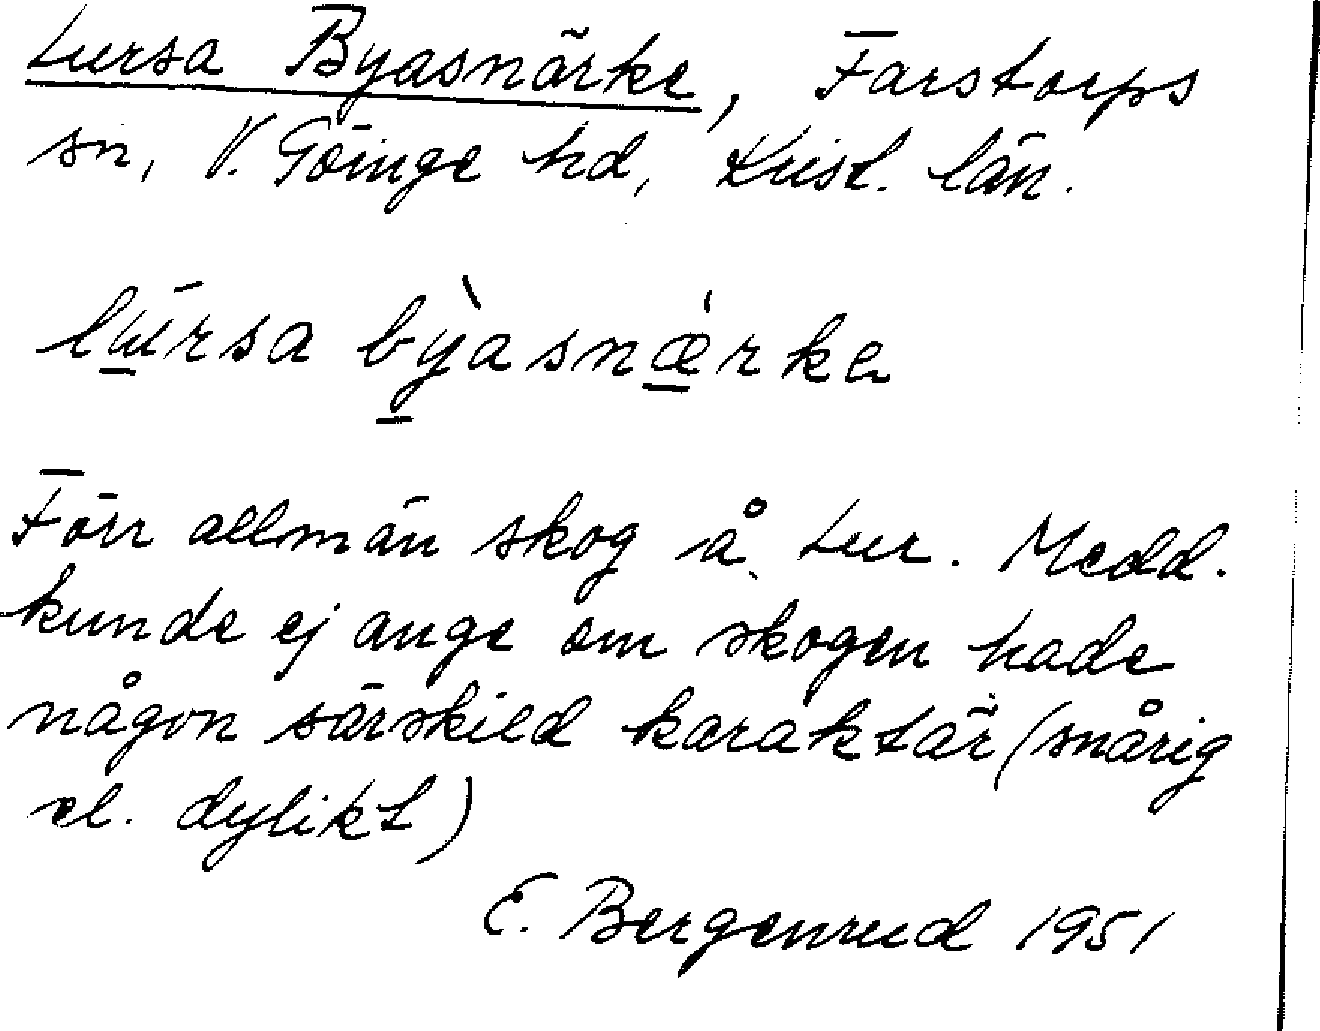 Lursa Byasnärke, Farstorps
sn, V. Göinge hd, Krist. län.
lu̲rsa bỳ̲asnæ̲̀rka
Förr allmän skog å Lur. Medd.
kunde ej ange om skogen hade
någon särskild karaktär (snårig
el. dylikt)
E. Bergenrud 1951